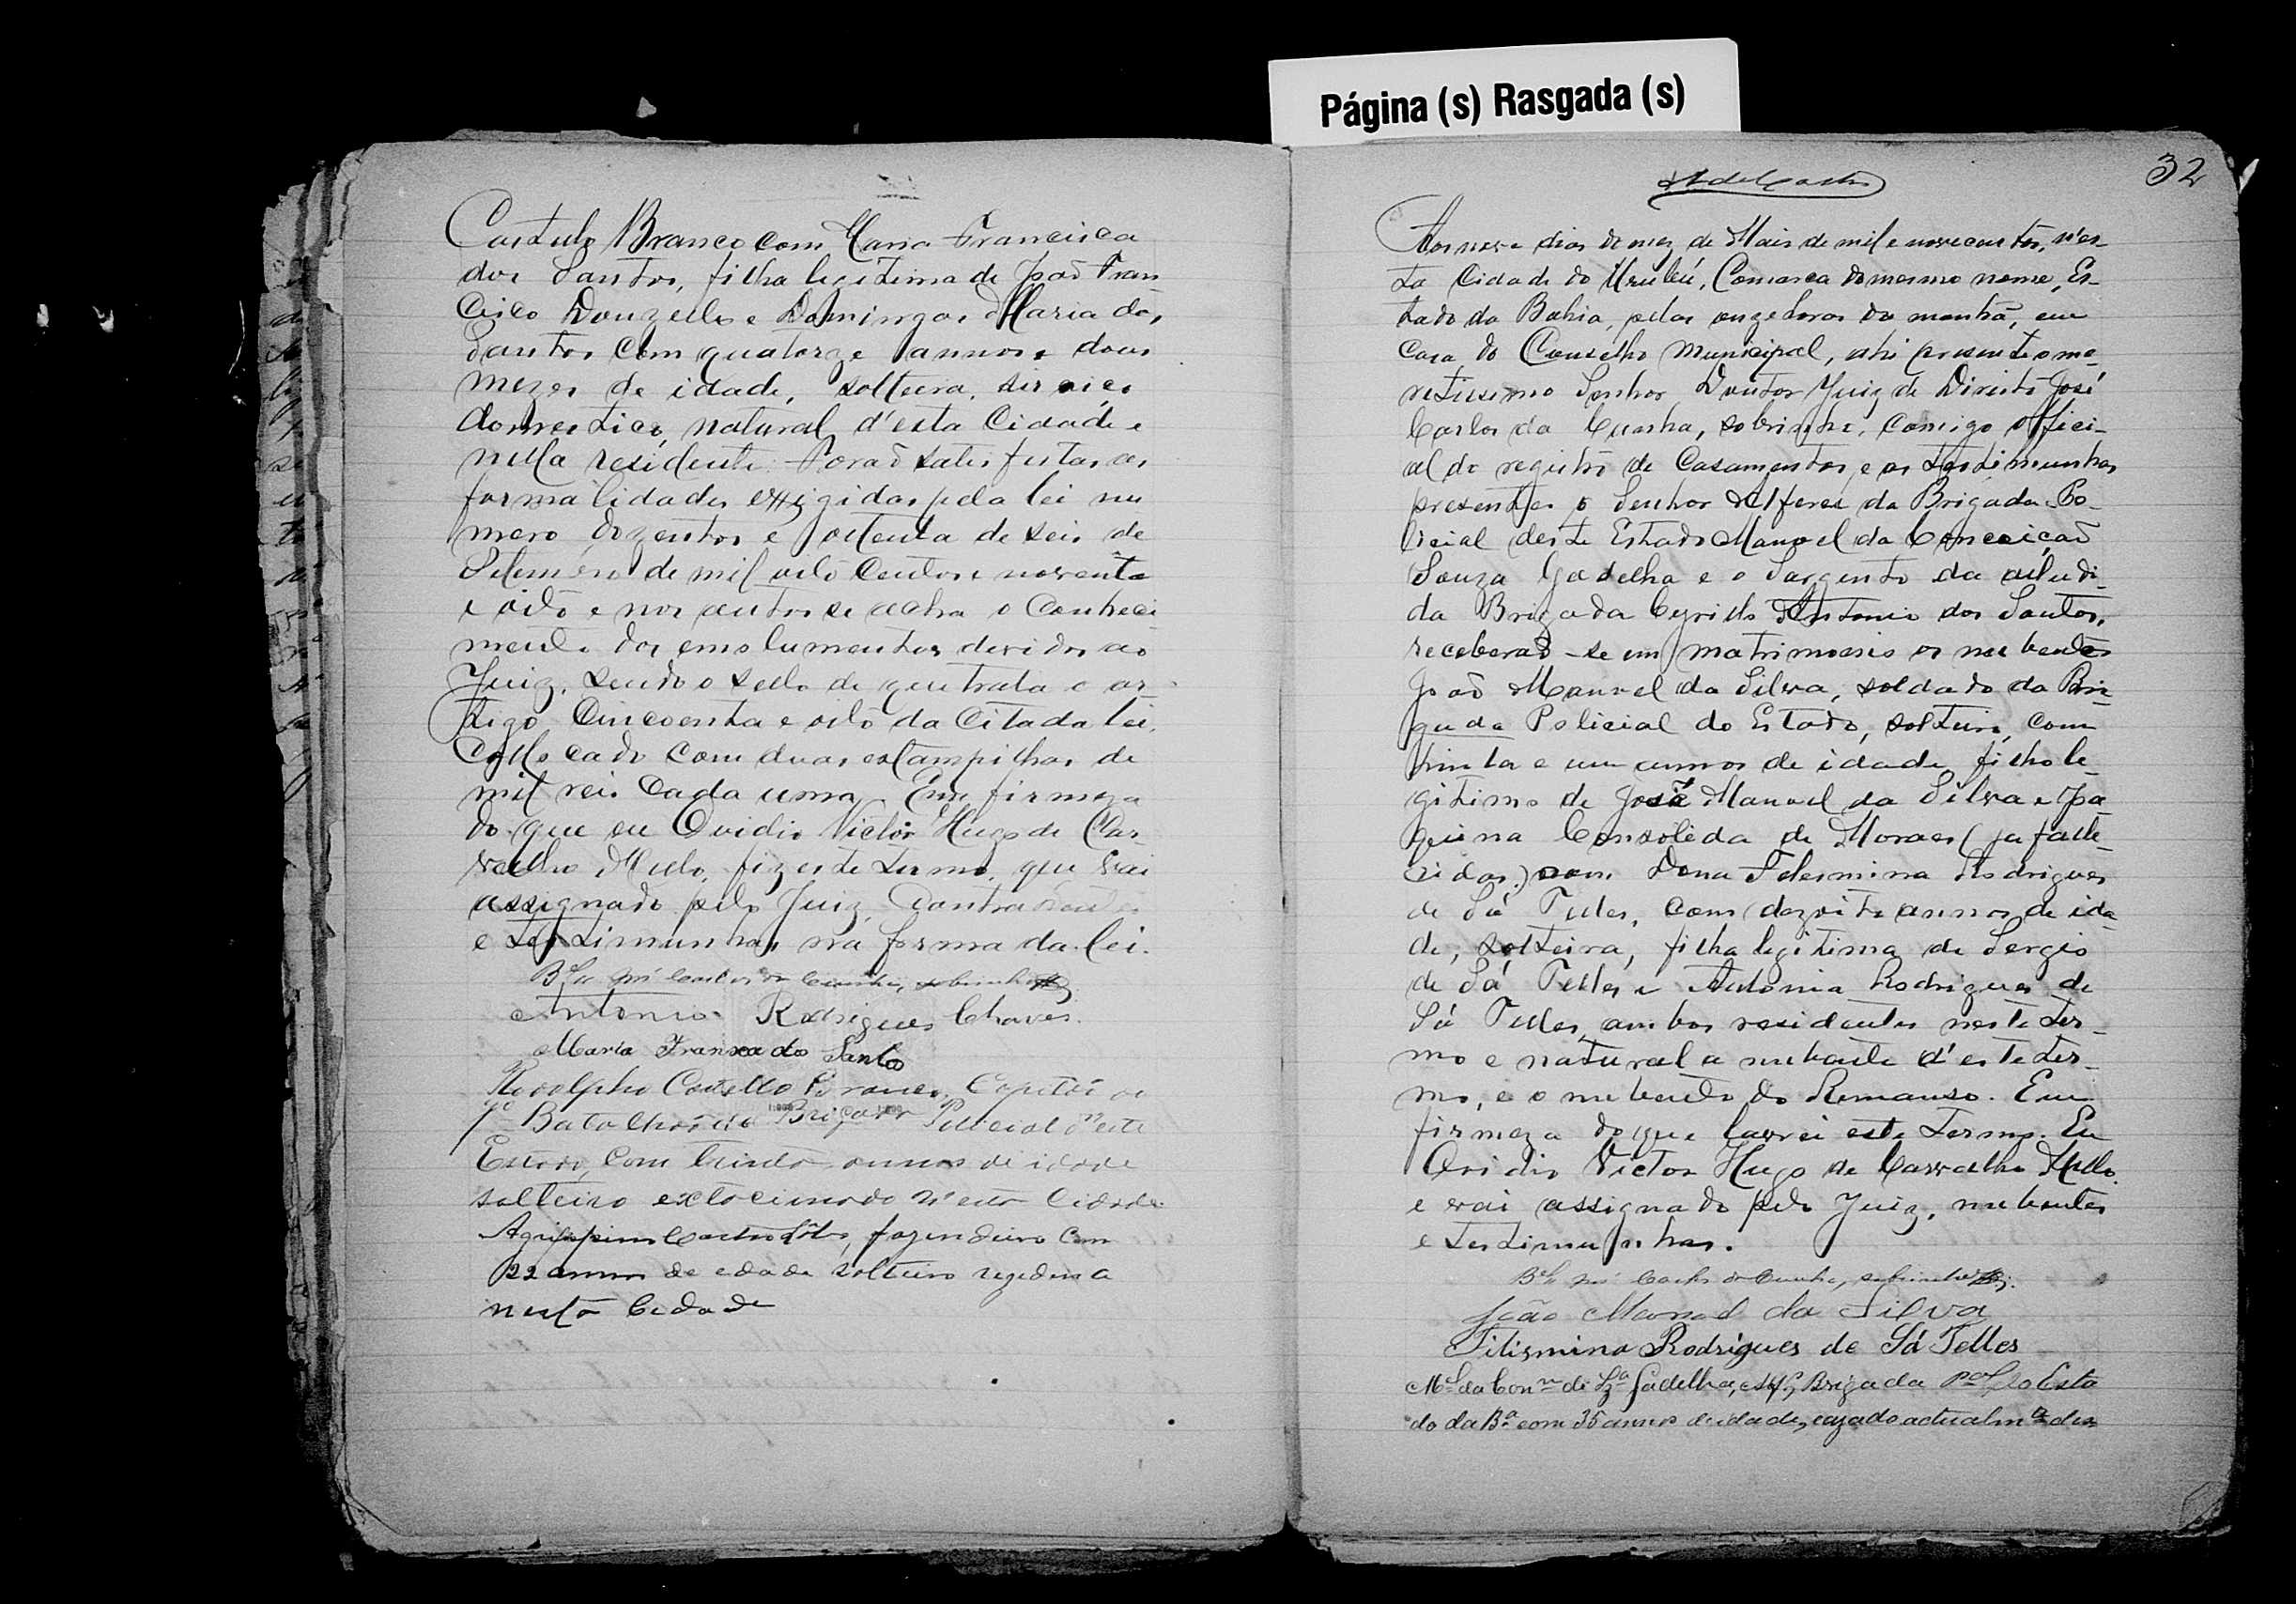 Página (s) Rasgada (s)
Castello Branco com Maria Francisca
dos Santos, filha legitima de João Fran-
cisco Donzello e Domingas Maria dos
Santos com quatorze annos e dous
mezes de idade, solteira, serviço
domestico, natural d'esta Cidade e
nella residente. Forão satisfeitas as
formalidades exigidas pela lei nu
mero duzentos e oitenta de seis de
Setembro de mil oito centos e noventa
e oito e nos autos se acha o conheci
mento dos emolumentos devidos ao
Juiz, sendo o sello de que trata o ar-
tigo cincoenta e oito da citada lei,
collocado com duas estampilhas de
mil reis cada uma. Em firmeza
do que eu Ovidio Victor Hugo de Car-
valho Mello, fiz este termo, que vai
assignado pelo Juiz, contra
e testimunhas na forma da lei.
Bel. José Carlos da Cunha, sobrinho
Antonio Rodrigues Chaves.
Maria Franca do Santos
Rodolpho Castello Branco, Capitão do
Batalhão da Brigada Policial d'este
Estado, com trinta annos de idade
solteiro extacionado n'esta Cidade
Agripino Castro, fazendeiro com
22 annos de edade solteiro rezedena
nesta Cidade
32
Aos nove dias do mez de Maio de mil e novecentos, n'es-
ta Cidade do Urubú, Comarca do mesmo nome, Es-
tado da Bahia, pelas onze horas da manhã, em
casa do Conselho Municipal, ahi presente o me-
retissimo Senhor Doutor Juiz de Direito José
Carlos da Cunha, sobrinho, comigo offici-
al do registro de casamentos, e as testimunhas
presentes o Senhor Alferes da Brigada Po-
licial deste Estado Manoel da Conceição
Souza Gadelha e o Sargento da alludi-
da Brigada Cyrillo Antonio dos Santos,
receberão-se em matrimonio os nubentes
João Manoel da Silva, soldado da Bri-
gada Policial do Estado, solteiro, com
trinta e um annos de idade, filho le-
gitimo de José Manoel da Silva e Joa
quina Consoleda de Moraes (ja falle-
cidos) com Dona Felesmina Rodrigues
de Sá Telles, com dezoito annos de ida-
de, solteira, filha legitima de Sergio
de Sá Telles e Antonia Rodrigues de
Sá Telles, ambos residentes neste ter-
mo e natural a nubente d'este ter-
mo, e o nubente do Remanso. Em
firmeza do que lavrei este termo. Eu
Ovidio Victor Hugo de Carvalho Mello.
e vai assignado pelo Juiz, nubentes
e testimunhas.
Bel. José Carlos da Cunha, sobrinho
João Manoel da Silva
Filismina Rodrigues de Sá Telles
Mel da Conm de Sza Gadelha, Alfs Brigada Pal do Esta
do da Ba com 35 annos de idade, cazado actualmte des